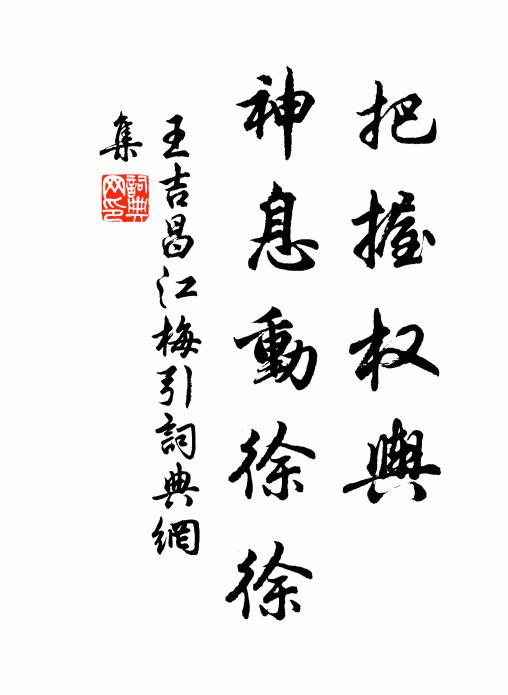 把握权輿
神息動徐徐
王吉昌江梅引詞典網
集
詞典
网印